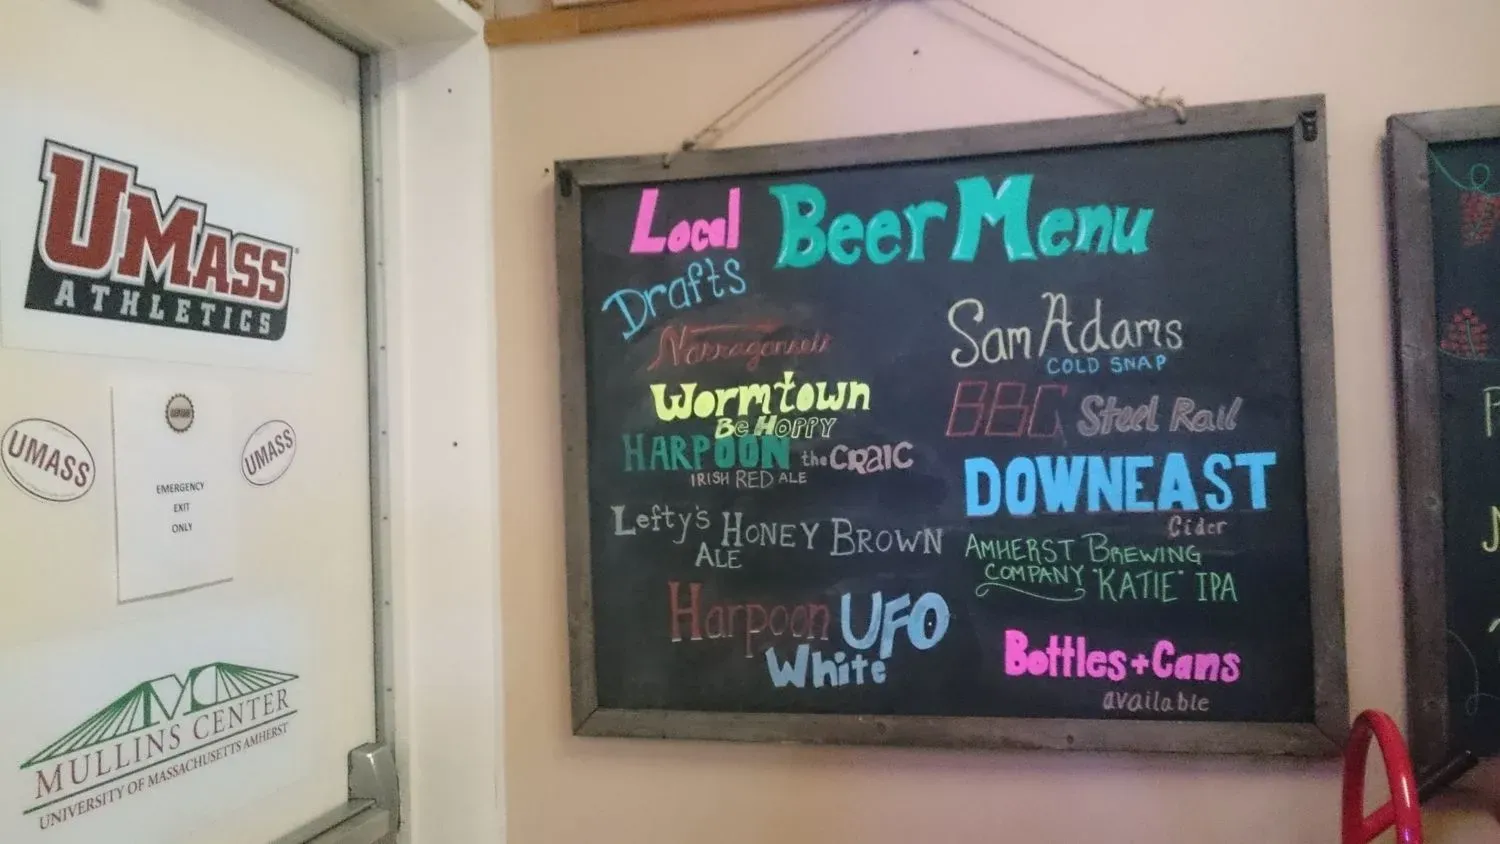 UMASS
ATHLETICS
UMASS
EMERGENCY
EXIT
ONLY
UMASS
MULLINS CENTER
UNIVERSITY OF MASSACHUSETTS AMHERST
Local Beer Menu
Drafts
Narragansett
Wormtown
Be Hoppy
HARPOON the CRAIC
IRISH RED ALE
Lefty's HONEY BROWN
ALE
Harpoon UFO
White
Sam Adams
COLD SNAP
BBC Steel Rail
DOWNEAST
Cider
AMHERST BREWING
COMPANY "KATIE" IPA
Bottles + Cans
available